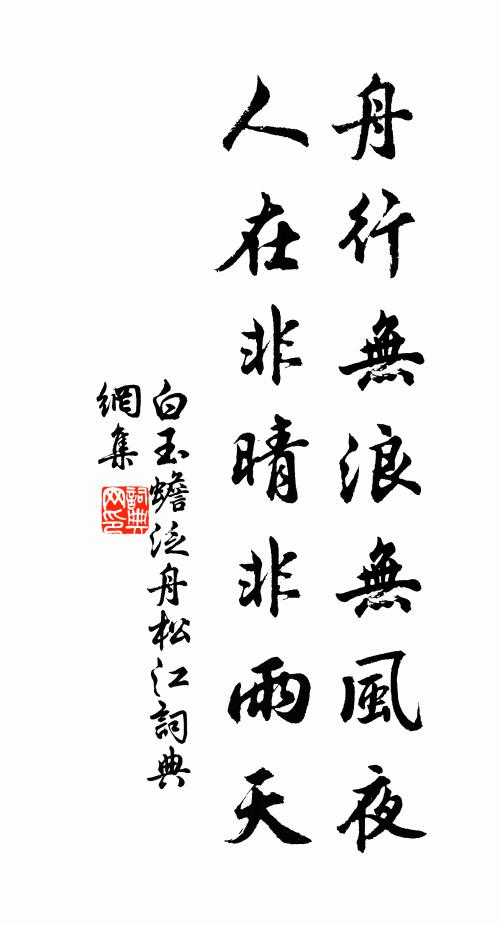 舟行無浪無風夜
人在非晴非雨天
白玉蟾泛舟松江詞典
網集
詞典
网印